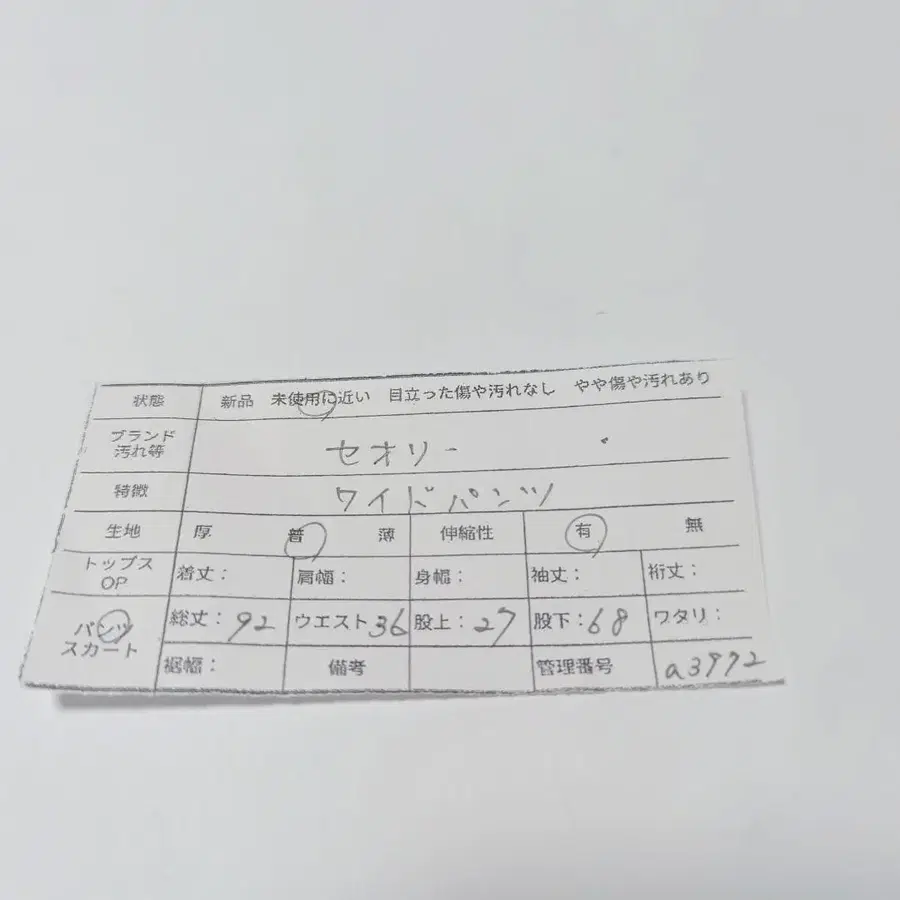 状態 新品 未使用に近い 目立った傷や汚れなし やや傷や汚れあり
ブランド
汚れ等 セオリー
特徴 ワイドパンツ
生地 厚 普 薄 伸縮性 有 無
トップス
OP 着丈: 肩幅: 身幅: 袖丈: 裄丈:
パンツ
スカート 総丈:92 ウエスト36 股上:27 股下:68 ワタリ:
裾幅: 備考 管理番号 a3992